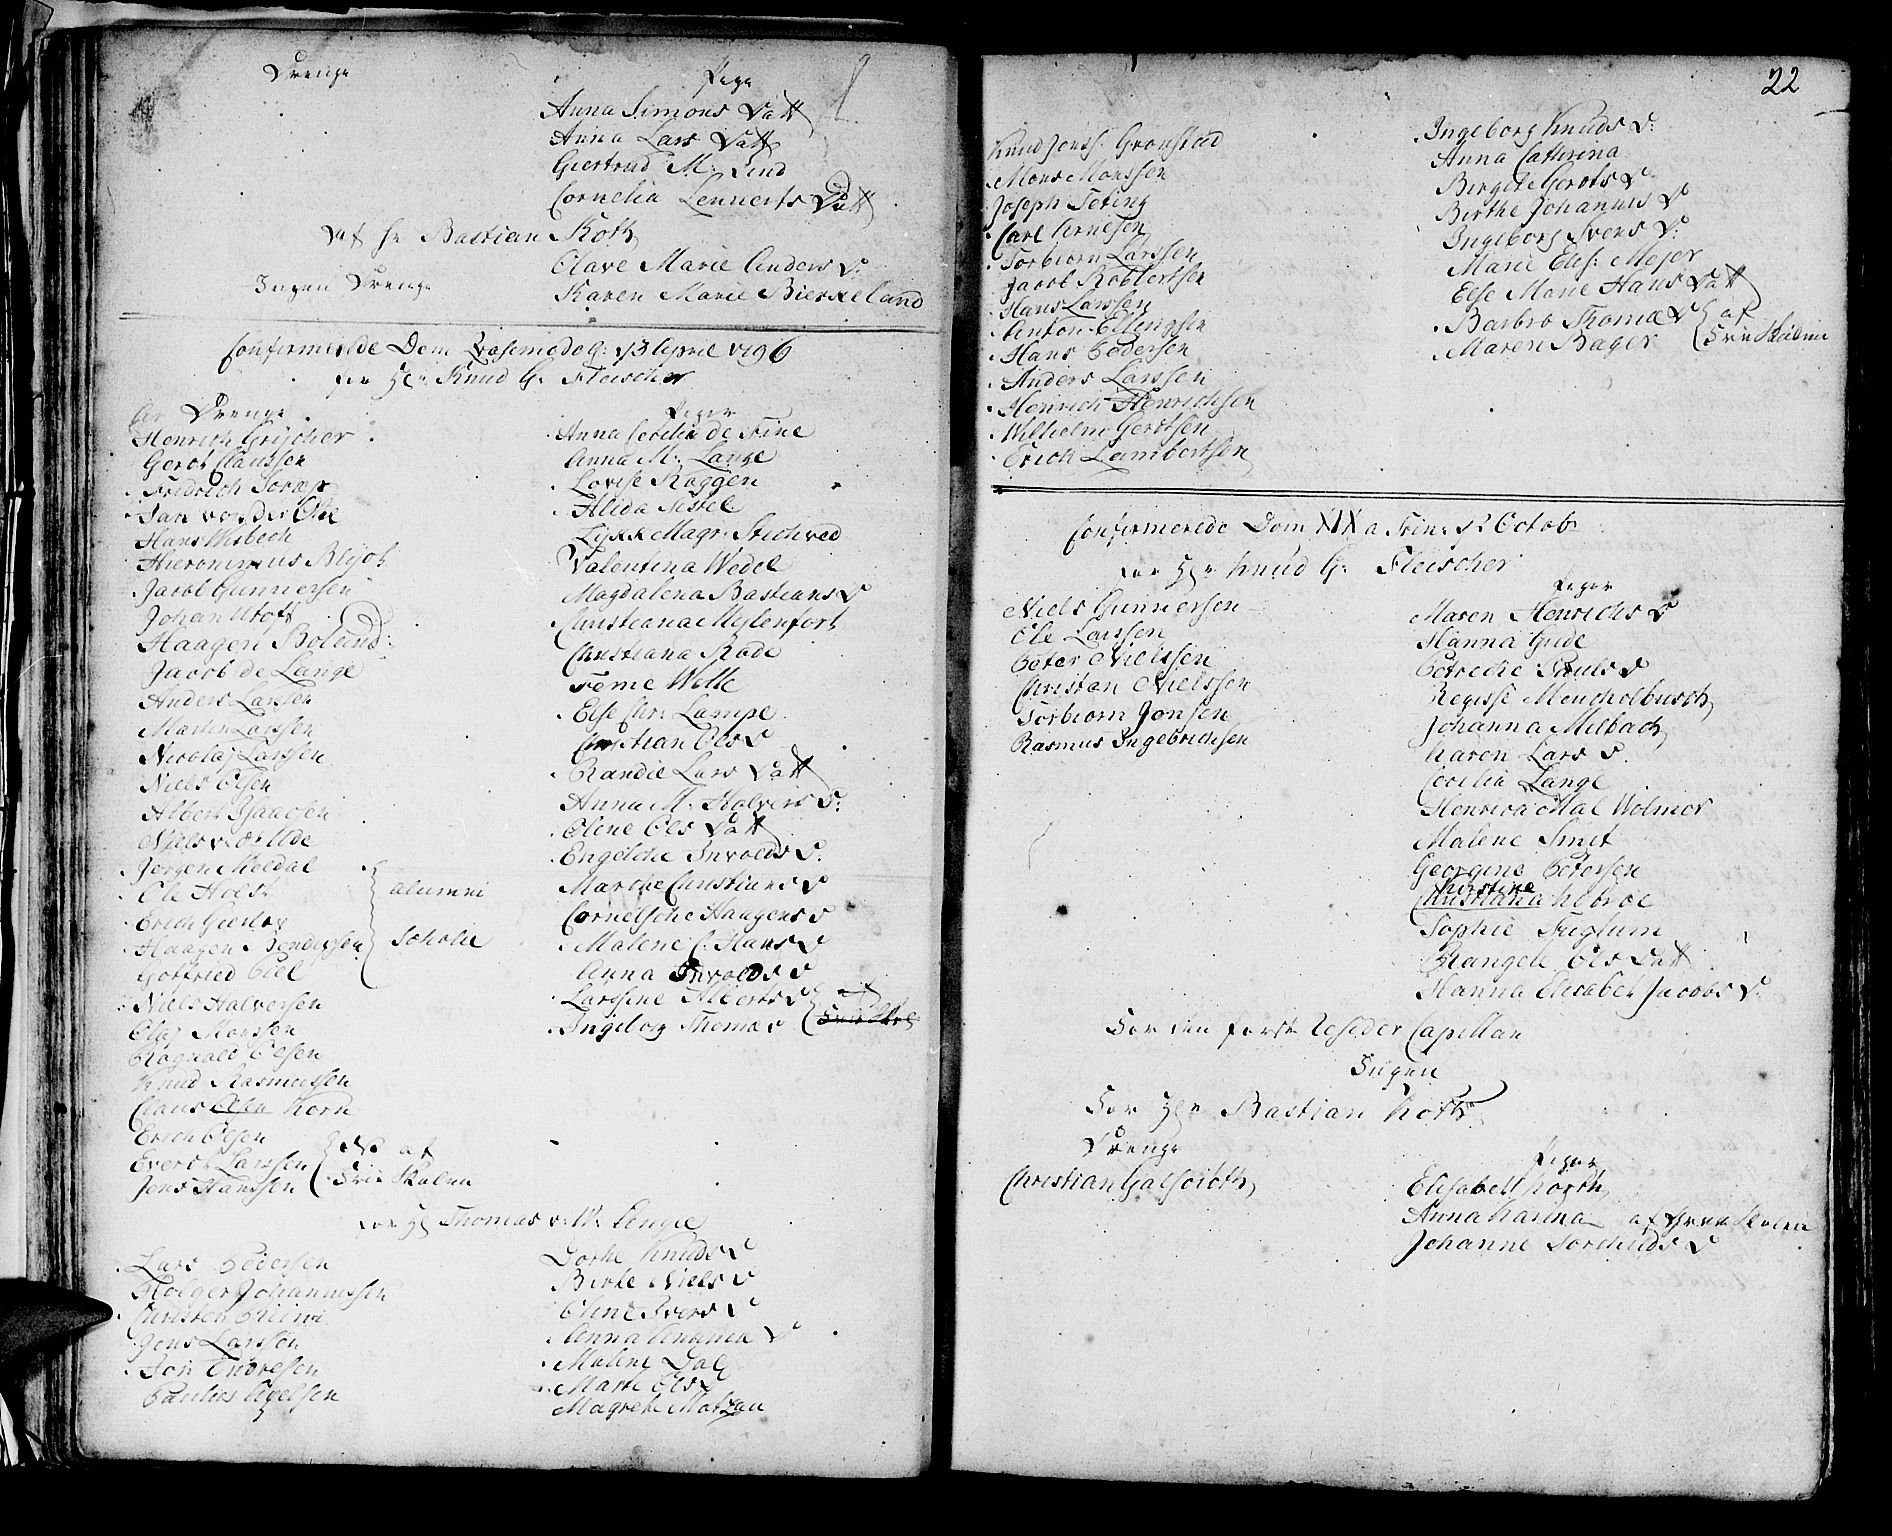 Drenge
Pige
Anna Simons Datt
Anna Lars Datt
Giertrud M: Lind
Cornelia Lennerts Datt
Bastian Koth
Olave Marie Anders D:
Ingen Drenge
Karen Marie Bierkeland
Confirmerede Dom Qvasimodog: 3 April 1796
for Hr Knud G. Fleischer
Drenge
Henrich Grijscher
Gerdt Claussen
Fridrich Torup
Jan von der Ohe
Hans Wisbech
Hieronimus
Jacob Gunnersen
Johan Utoft
Haagen Bolund
Jacob de Lange
Anders Larsen
Martin Larssen
Nicolaj Larssen
Niels Olsen
Albert Isaacsen
Niels v: d: Ilde
Jørgen Meldal
Ole Holst
Erich
Haagen Bendixsen
Gotfried Ohel
alumni
Scholæ
Niels Halversen
Oluf Monsen
Ragnald Olsen
Knud Rasmussen
Claus Olsen Korn
Erich Olsen
Everdt Larssen
Jens Hanssen
af
Frie Skolen
Piger
Anna Cecilia de Fine
Anna M: Lange
Lovise Røggen
Alida Sestel
Lykke Magr: Stichved
Valentina Wedel
Magdalena Bastians D
Christiana Mylenfort
Christiana Rode
Feme Welle
Else Chr: Lampe
Christian Ols D
Randie Lars Datt
Anna M: Halvers D:
Olene Ols Datt
Engelche Involds D:
Marthe Christians D
Cornelsche Haagens D
Malene C: Hans D
Anna Involds D
Larssine Alberts D
Ingeborg Thomæ D
for Hr Thomas v: W: Lengie
Lars Pedersen
Holger Johannessen
Christen
Jens Larssen
Jon Endresen
Paulus Axelsen
Dorthe Knuds D
Birte Niels D
Oline Ivers D
Anna D
Malene Dal
Marte Ols D
Magrete Matzau
22
Knud Jonss: Grønstad
Mons Monssen
Joseph Seting
Carl Arnesen
Torbiørn Larssen
Jacob Robbertsen
Hans Larssen
Anton Ellingsen
Hans Pedersen
Anders Larssen
Henrich Henrichsen
Wilhelm Gertsen
Erich Lambertsen
Ingeborg Knuds D:
Anna Cathrina
Birgite Gerdts D
Birthe Johannes D
Ingeborg Svens D:
Marie Elis: Mejer
Else Marie Hans Datt
Barbro Thomæ D
Maren Bager
af
Frie Skolen
Confirmerede Dom XIX a Trin: 2 Octob
for Hr Knud G: Fleischer
Niels Gunnersen
Ole Larssen
Peter Nielsen
Christian Nielssen
Torbiørn Jonsen
Rasmus Ingebrichsen
Piger
Maren Henrichs D
Hanna Gude
Petreche Pauls D
Regisse Mencholbusch
Johanna Milbach
Karen Lars D.
Cecilia Lange
Henrica Mal Wolmer
Malene Smit
Georgine Petersen
Kirstine
Christiana
Sophie Fuglum
Rangele Ols Datt
Hanna Elisabet Jacobs D:
For den første Resider Capellan
Ingen
For Hr Bastian Koth
Drenge
Christian
Piger
Elisabeth
Anna Karina af Skolen
Johanne Torchilds D